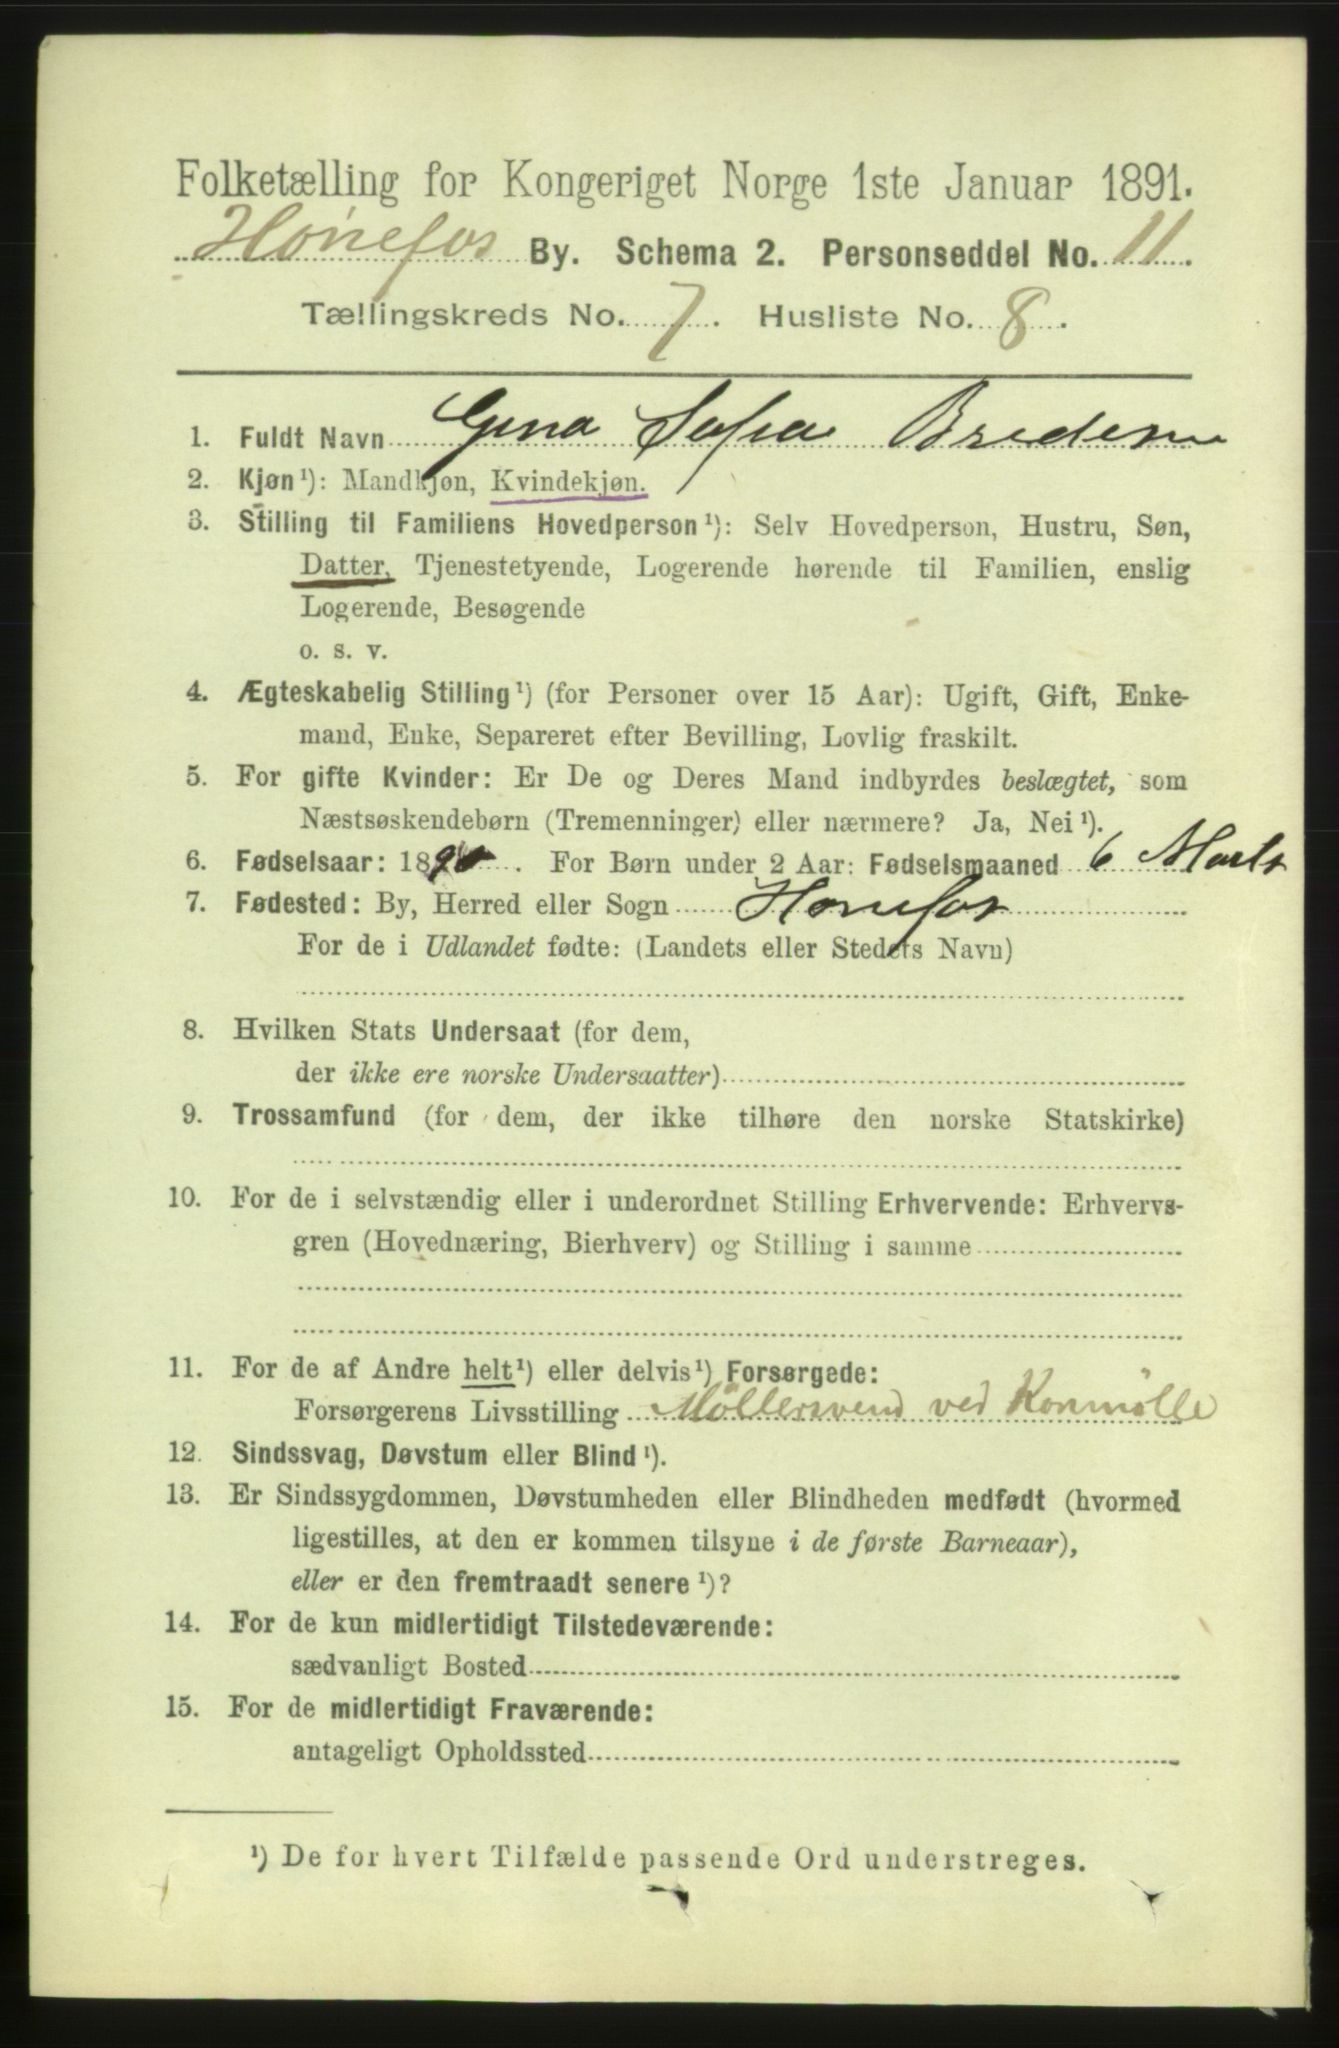 Folketælling for Kongeriget Norge 1ste Januar 1891.
Hønefos By. Schema 2. Personseddel No. 11.
Tællingskreds No. 7. Husliste No. 8.
1. Fuldt Navn Gina Sofia
2. Kjøn¹): Mandkjøn, Kvindekjøn.
3. Stilling til Familiens Hovedperson¹): Selv Hovedperson, Hustru, Søn,
Datter, Tjenestetyende, Logerende hørende til Familien, enslig
Logerende, Besøgende
o. s. v.
4. Ægteskabelig Stilling¹) (for Personer over 15 Aar): Ugift, Gift, Enke-
mand, Enke, Separeret efter Bevilling, Lovlig fraskilt.
5. For gifte Kvinder: Er De og Deres Mand indbyrdes beslægtet, som
Næstsøskendebørn (Tremenninger) eller nærmere? Ja, Nei¹).
6. Fødselsaar: 1890. For Børn under 2 Aar: Fødselsmaaned 6 Marts
7. Fødested: By, Herred eller Sogn Hønefos
For de i Udlandet fødte: (Landets eller Stedets Navn)
8. Hvilken Stats Undersaat (for dem,
der ikke ere norske Undersaatter)
9. Trossamfund (for dem, der ikke tilhøre den norske Statskirke)
10. For de i selvstændig eller i underordnet Stilling Erhvervende: Erhvervs-
gren (Hovednæring, Bierhverv) og Stilling i samme
11. For de af Andre helt¹) eller delvis¹) Forsørgede:
Forsørgerens Livsstilling Møllersvend ved Kornmølle
12. Sindssvag, Døvstum eller Blind¹).
13. Er Sindssygdommen, Døvstumheden eller Blindheden medfødt (hvormed
ligestilles, at den er kommen tilsyne i de første Barneaar),
eller er den fremtraadt senere¹)?
14. For de kun midlertidigt Tilstedeværende:
sædvanligt Bosted
15. For de midlertidigt Fraværende:
antageligt Opholdssted
¹) De for hvert Tilfælde passende Ord understreges.